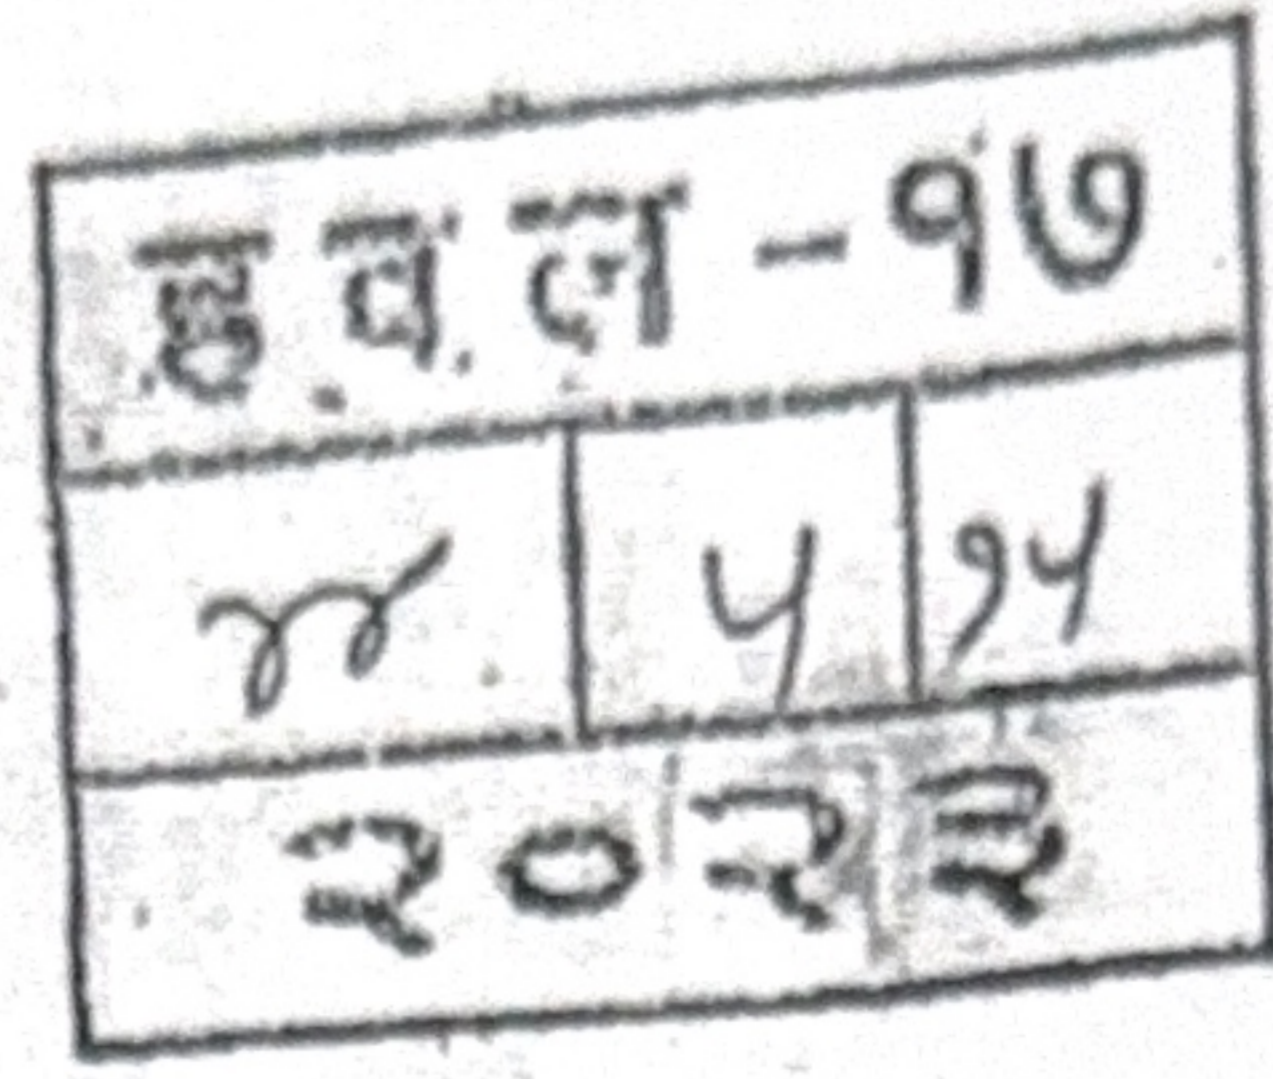 ह व ल - १७
४४ ५ १५
२०२३